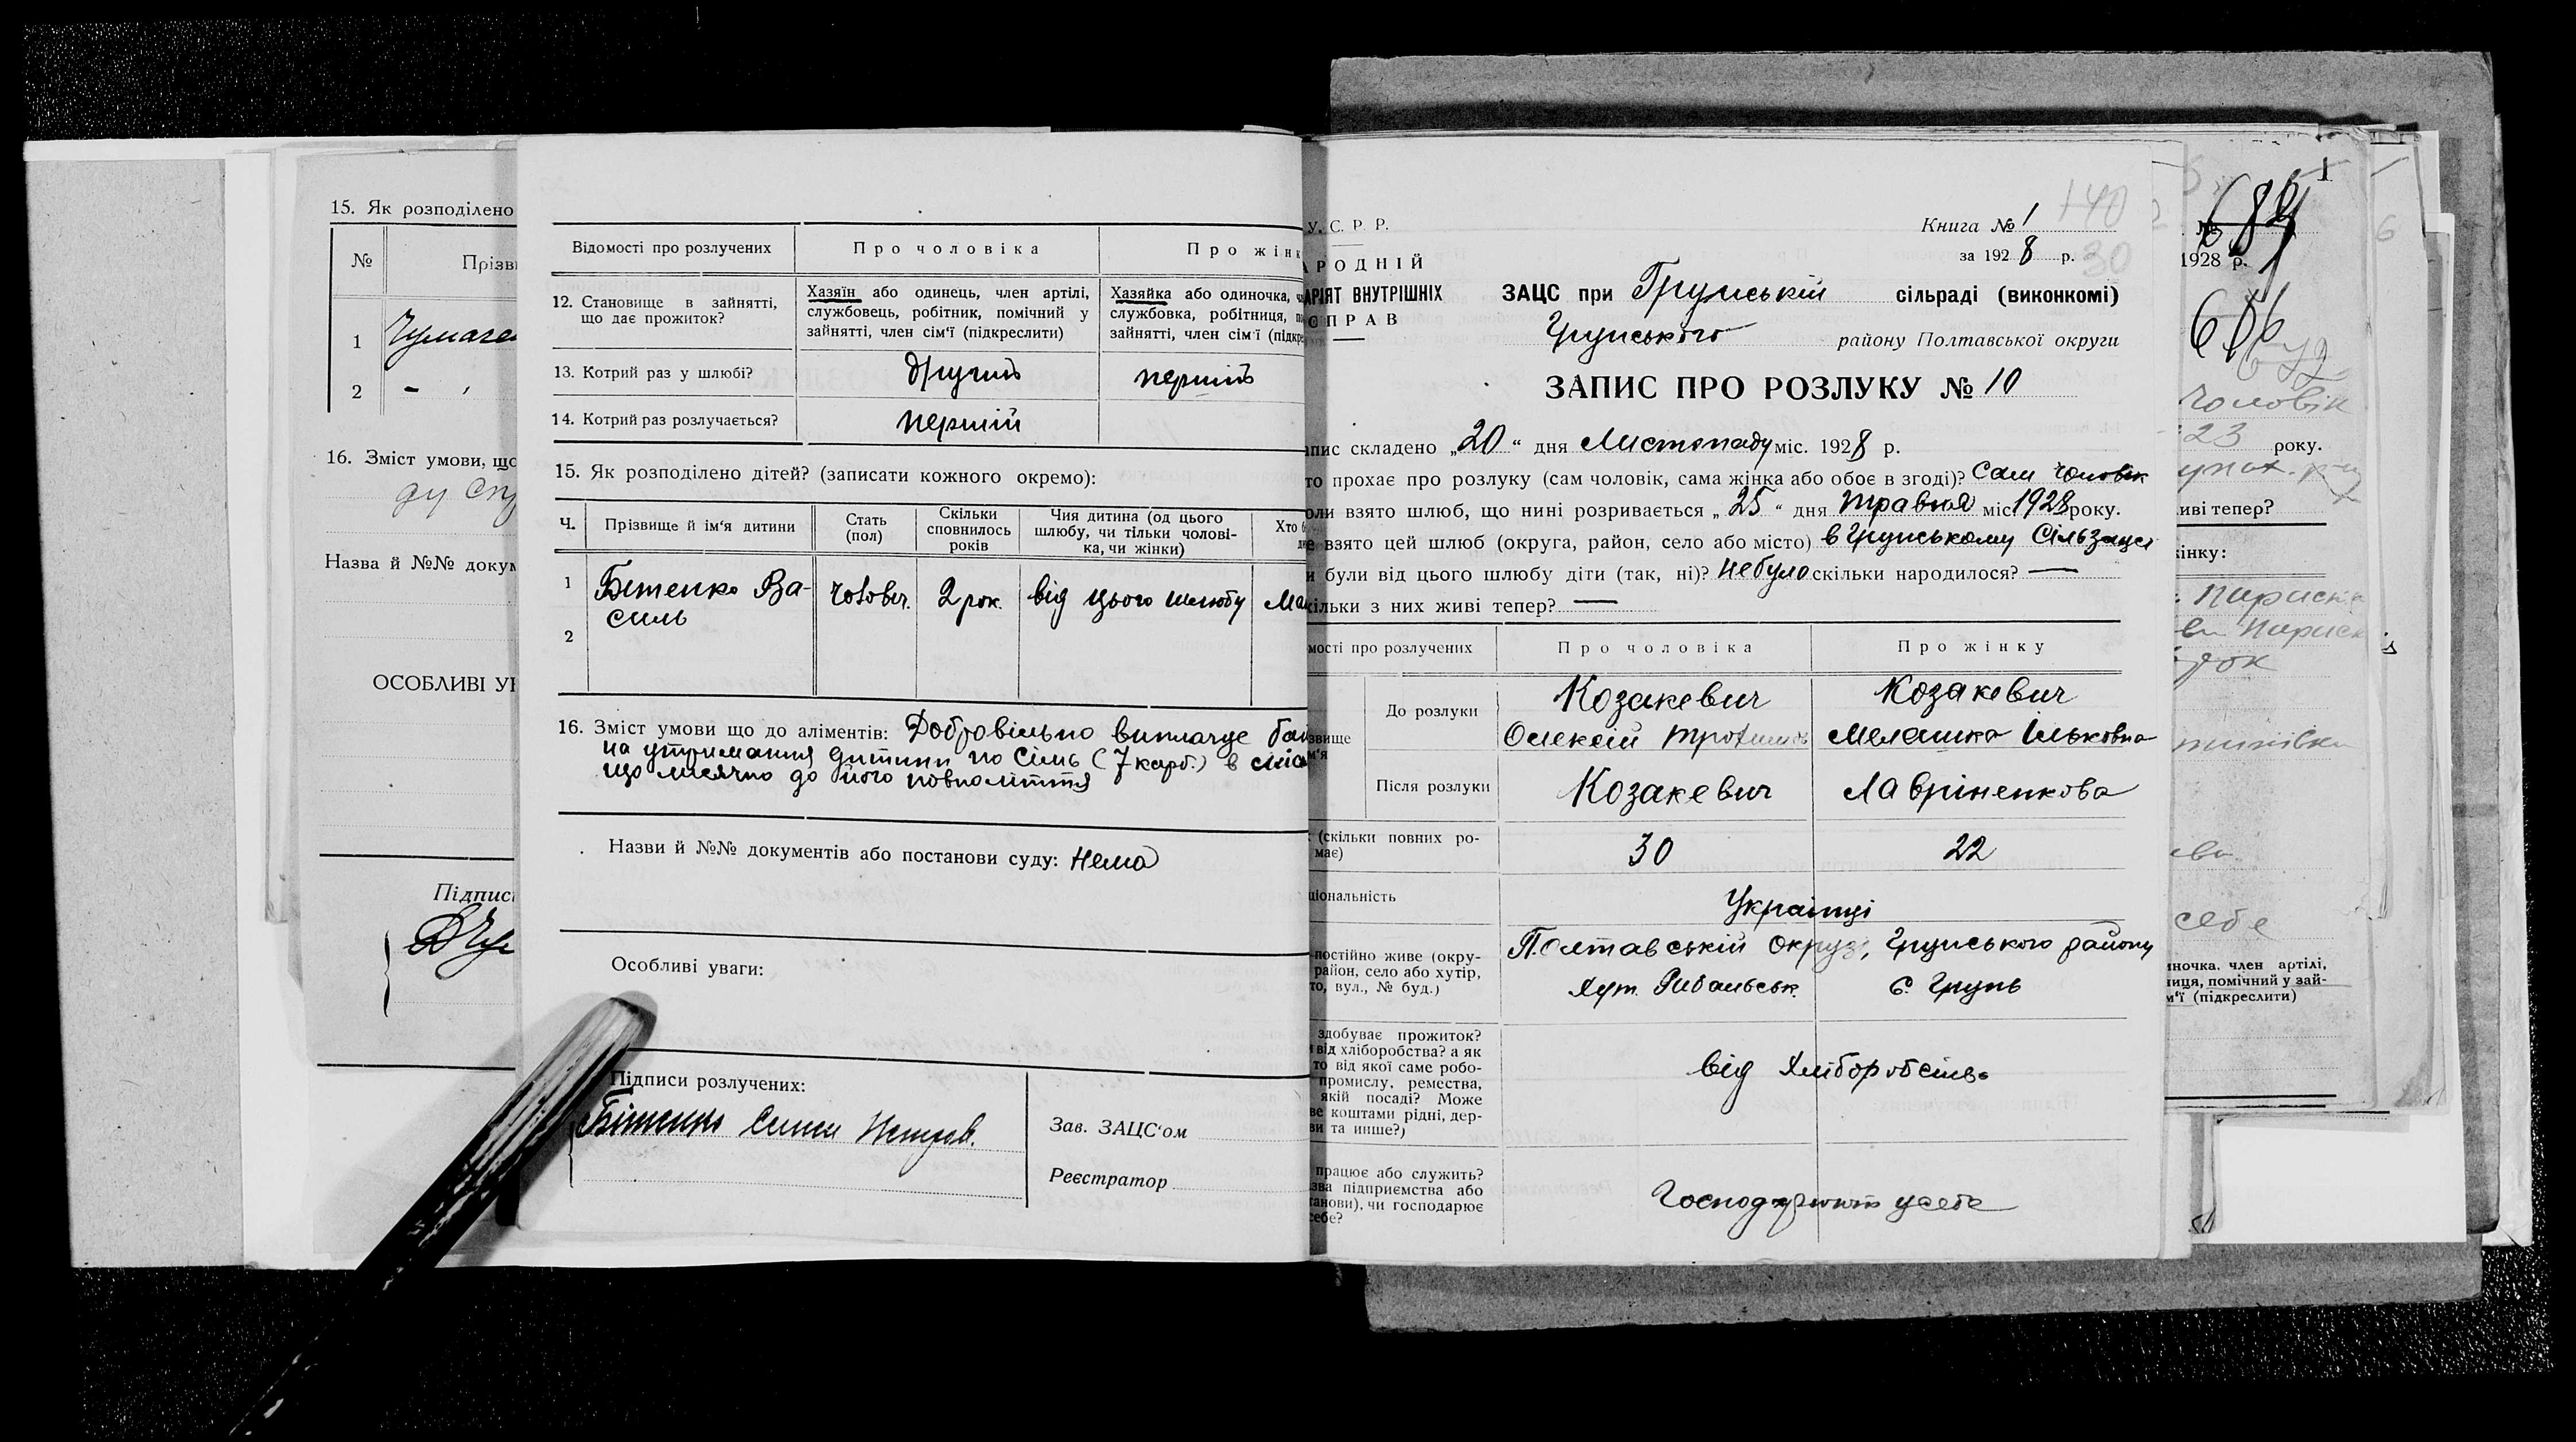 15. Як розподілено
№
Прізв
1
2
16. Зміст умови, що
ду
Назва й №№ докум
ОСОБЛИВІ У
Підпис
Відомості про розлучених
Про чоловіка
Про жінк
12. Становище в зайнятті, що дає прожиток?
Хазяїн або одинець, член артілі,
службовець, робітник, помічний у
зайнятті, член сім'ї (підкреслити)
Хазяйка або одиночка,
службовка, робітниця,
зайнятті, член сім'ї (підкре
13. Котрий раз у шлюбі?
другий
перший
14. Котрий раз розлучається?
перший
15. Як розподілено дітей? (записати кожного окремо):
Ч.
Прізвище й ім'я дитини
Стать
(пол)
Скільки
сповнилось
років
Чия дитина (од цього
шлюбу, чи тільки чолові-
ка, чи жінки)
Хто
1
Бітенко Ва-
силь
чоловіч.
2 рок.
від цього шлюбу
Ма
2
16. Зміст умови що до аліментів: Добровільно виплачує ба
на утримання дитини по сім (7 карб.) в міс
що місячно до його повноліття
Назви й №№ документів або постанови суду: Нема
Особливі уваги:
Підписи розлучених:
Бітенко
Зав. ЗАЦС'ом
Реєстратор
У. С. Р. Р.
РОДНІЙ
АРІЯТ ВНУТРІШНІХ
СПРАВ
Книга № 1
140
за 1928 р.
30
ЗАЦС при Грунській сільраді (виконкомі)
Грунського району Полтавської округи
ЗАПИС ПРО РОЗЛУКУ № 10
пис складено „20“ дня Листопаду міс. 1928 р.
то прохає про розлуку (сам чоловік, сама жінка або обоє в згоді)? Сам чоловік
оли взято шлюб, що нині розривається „25“ дня травня міс 1928 року.
е взято цей шлюб (округа, район, село або місто) в Грунському Сільзацсі
и були від цього шлюбу діти (так, ні)? не було скільки народилося? —
кільки з них живі тепер? —
мості про розлучених
Про чоловіка
Про жінку
звище
м'я
До розлуки
Козакевич
Олексій
Козакевич
Мелашка Ільковна
Після розлуки
Козакевич
Лавріненкова
(скільки повних ро-
має)
30
22
ціональність
Українці
постійно живе (окру-
район, село або хутір,
то, вул., № буд.)
Полтавській окрузі, Грунського району
хут. Рибальськ.
с. Грунь
здобуває прожиток?
від хліборобства? а як
то від якої саме робо-
промислу, ремества,
якій посаді? Може
ве коштами рідні, дер-
ви та инше?)
від хліборобства
працює або служить?
зва підприємства або
танови), чи господарює
себе?
Господарюють у себе
№
1928 р.
чоловік
23 року.
иві тепер?
інку:
себе
иночка, член артілі,
ниця, помічний у зай-
м'ї (підкреслити)
6